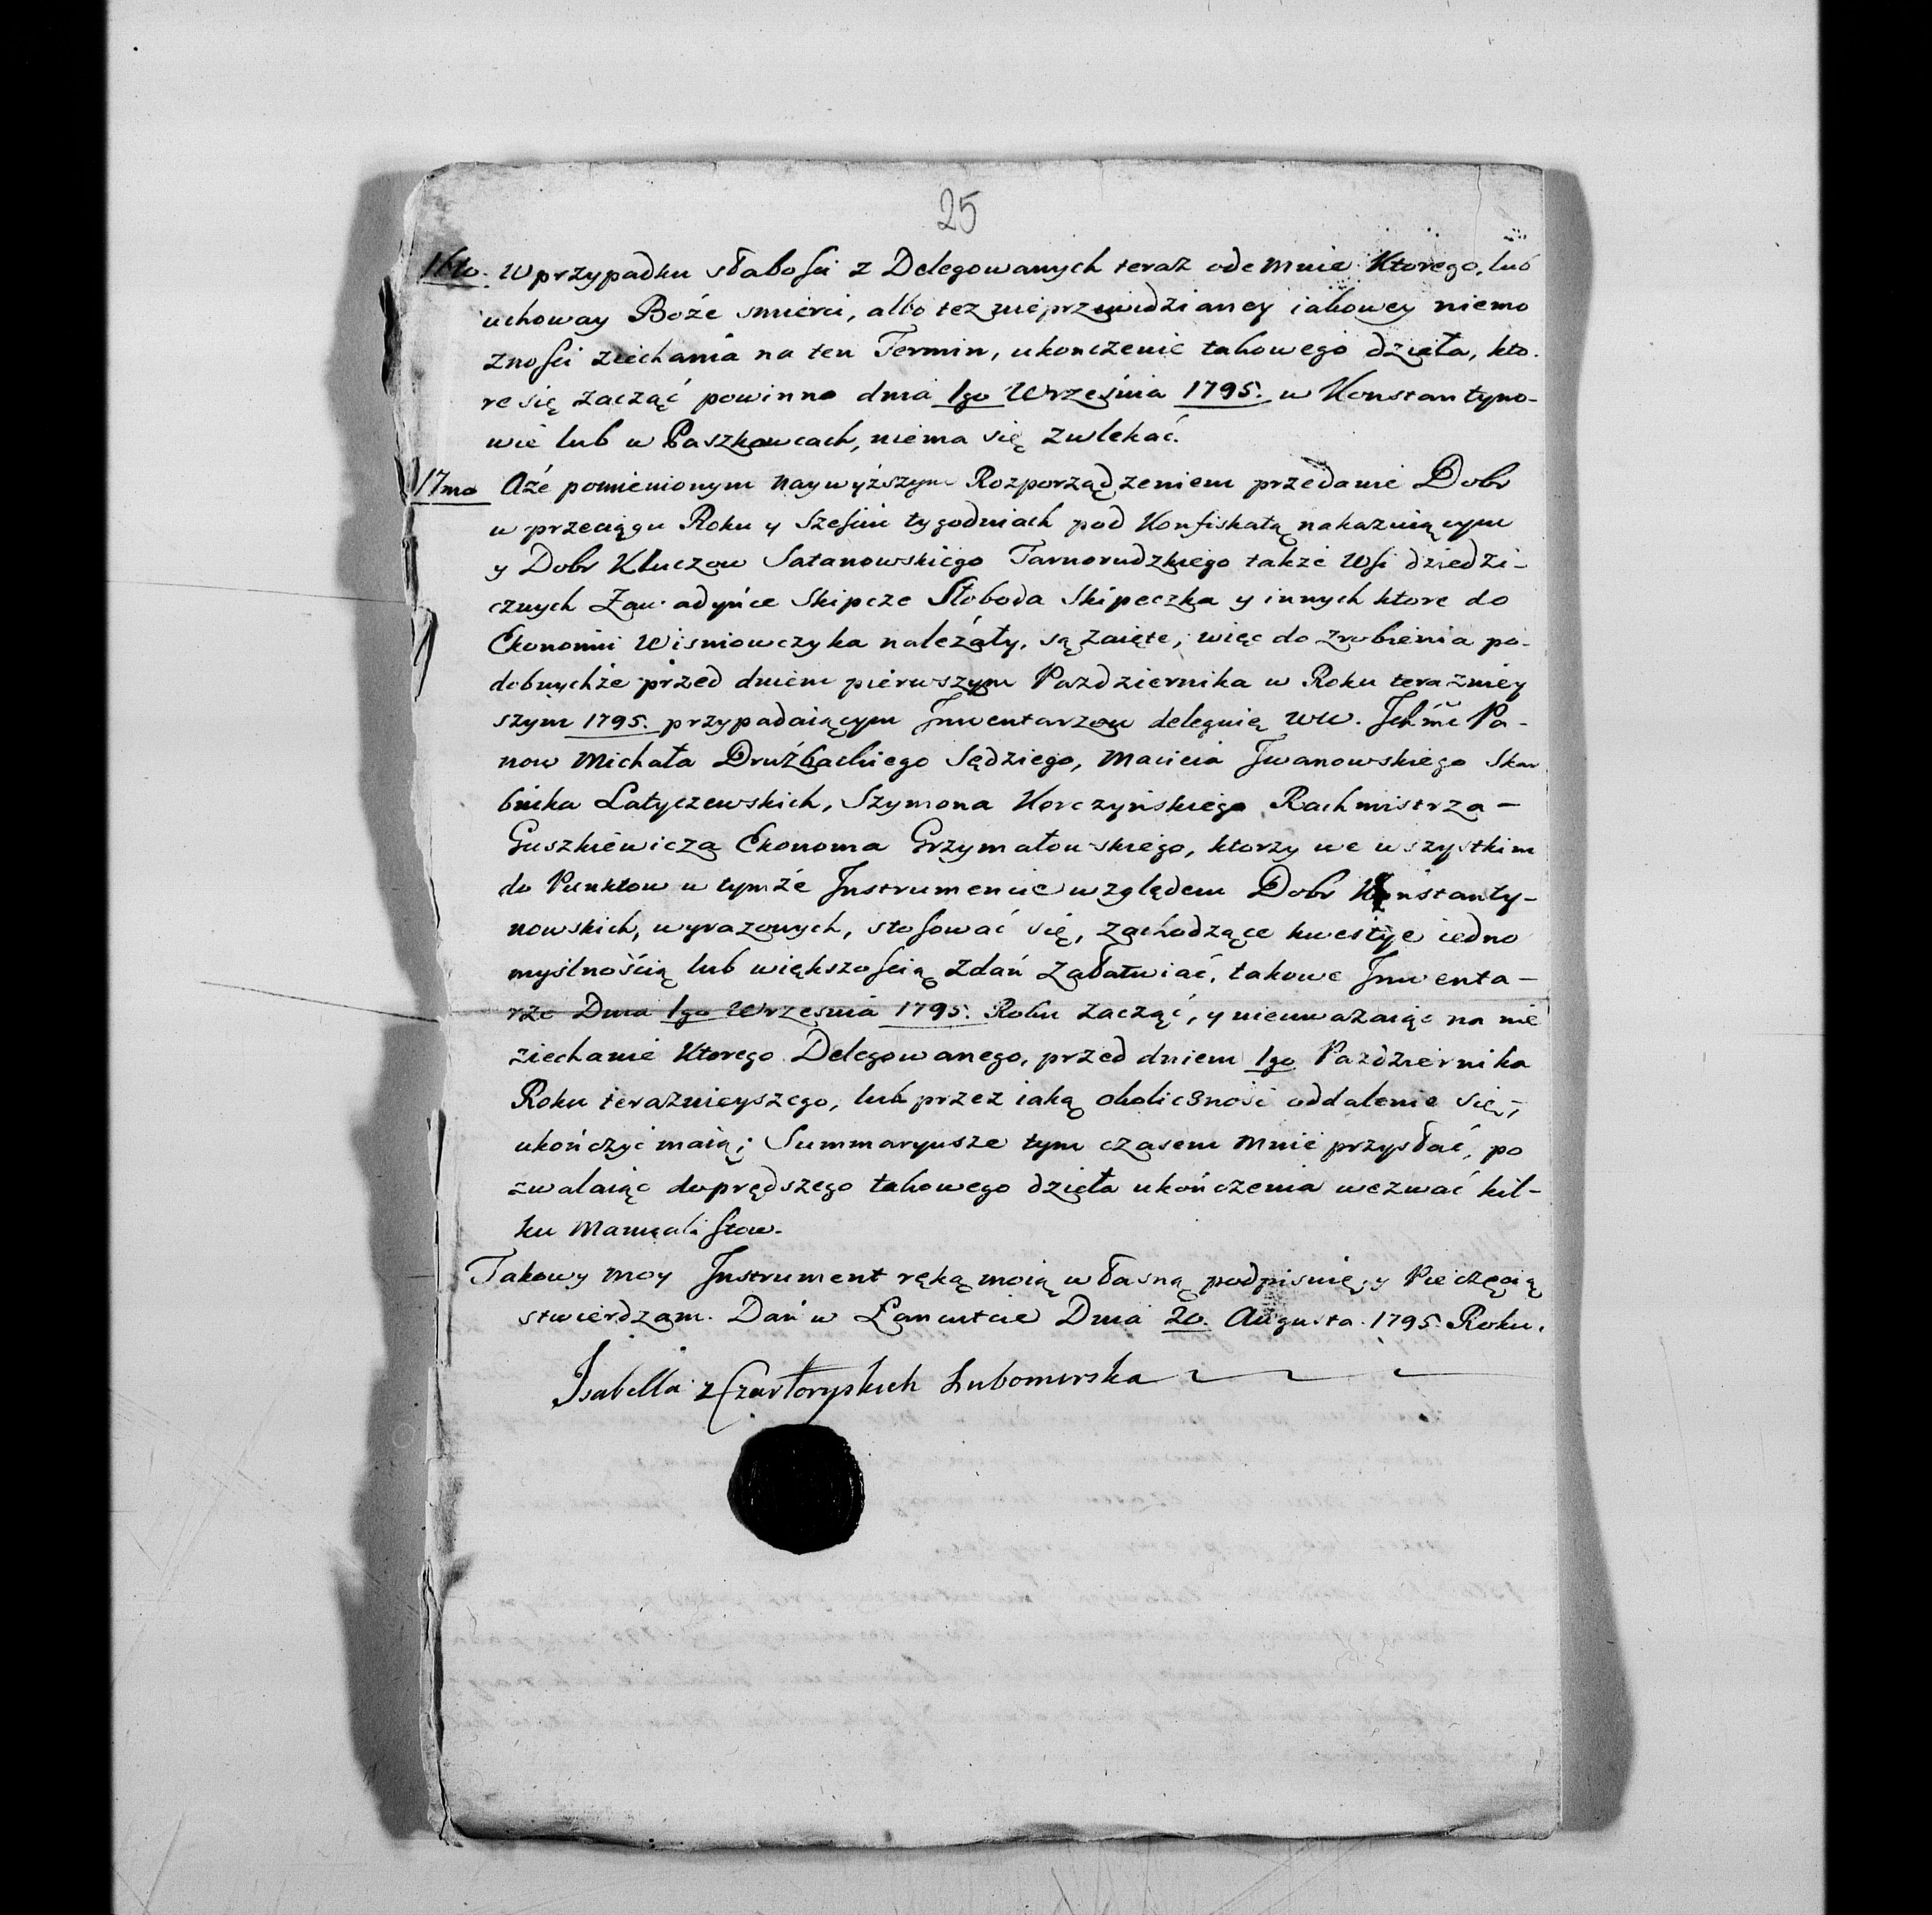 25
16to. W przypadku słabości z Delegowanych teraz odemnie Ktorego, lub
uchoway Boże smierci, albo tez nieprzewidzianey iakowey niemo
zności ziechania na ten Termin, ukonczenie takowego dzieła, kto-
re się zacząć powinno dnia 1go Września 1795. w Konstantyno-
wie lub w Paszkowcach, niema się zwlekać.
17mo Aże pomienionym naywyższym Rozporządzeniem przedanie Dobr
w przeciągu Roku y Sześciu tygodniach pod Konfiskatą nakazuiącym
y Dobr Kluczow Satanowskiego Tarnorudzkiego także Wsi dziedzi-
cznych Zawadyńce Skipcze Słoboda Skipeczka y innych ktore do
Ekonomii Wisniowczyka należały, są zaięte, więc do zrobienia po-
dobnychże przed dniem pierwszym Pazdziernika w Roku teraźniey
szym 1795. przypadaiącym Inwentarzow deleguię WW. Ichmć Pa-
now Michała Drużbackiego Sędziego, Macieia Iwanowskiego Skar
bnika Latyczewskich, Szymona Korczyńskiego Rachmistrza -
Guszkiewicza Ekonoma Grzymałowskiego, ktorzy we wszystkim
do Punktow w tymże Instrumencie względem Dobr Konstanty-
nowskich, wyrazonych, stosować się, zachodzące kwestye iedno
myślnością lub większością zdań załatwiać, takowe Inwenta-
rze Dnia 1go Września 1795. Roku zacząć, y nieuważaiąc na nie
ziechanie Ktorego Delegowanego, przed dniem 1go Pazdziernika
Roku teraznieyszego, lub przez iaką okoliczność oddalenie się,
ukończyć maią; Summaryusze tym czasem mnie przysłać, po
zwalaiąc do prędszego takowego dzieła ukończenia wezwać kil-
ku Manualistow.
Takowy moy Instrument ręką moią własną podpisuię, y Pieczęcią
stwierdzam. Dań w Łancucie Dnia 20. Augusta 1795. Roku.
Isabella z Czartoryskich Lubomirska